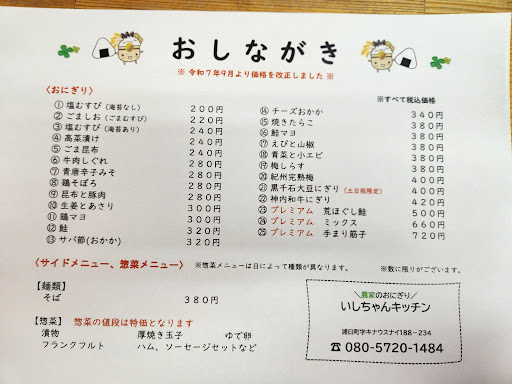 おしながき
※ 令和7年9月より価格を改正しました ※
〈おにぎり〉
※すべて税込価格
① 塩むすび(海苔なし) 200円
② ごましお(ごまむすび) 220円
③ 塩むすび(海苔あり) 240円
④ 高菜漬け 240円
⑤ ごま昆布 240円
⑥ 牛肉しぐれ 280円
⑦ 青唐辛子みそ 280円
⑧ 鶏そぼろ 280円
⑨ 昆布と豚肉 280円
⑩ 生姜とあさり 300円
⑪ 鶏マヨ 300円
⑫ 鮭 320円
⑬ サバ節(おかか) 320円
⑭ チーズおかか 340円
⑮ 焼きたらこ 380円
⑯ 鮭マヨ 380円
⑰ えびと山椒 380円
⑱ 青菜と小エビ 380円
⑲ 梅しらす 380円
⑳ 紀州完熟梅 400円
㉑ 黒千石大豆にぎり(土日祝限定) 400円
㉒ 神内和牛にぎり 420円
㉓ プレミアム 荒ほぐし鮭 500円
㉔ プレミアム ミックス 660円
㉕ プレミアム 手まり筋子 720円
〈サイドメニュー、惣菜メニュー〉 ※惣菜メニューは日によって種類が異なります。
※数に限りがございます。
【麺類】
そば 380円
【惣菜】 惣菜の値段は特価となります
漬物 厚焼き玉子 ゆで卵
フランクフルト ハム、ソーセージセットなど
＼農家のおにぎり／
いしちゃんキッチン
浦臼町字キナウスナイ188－234
☎ 080-5720-1484